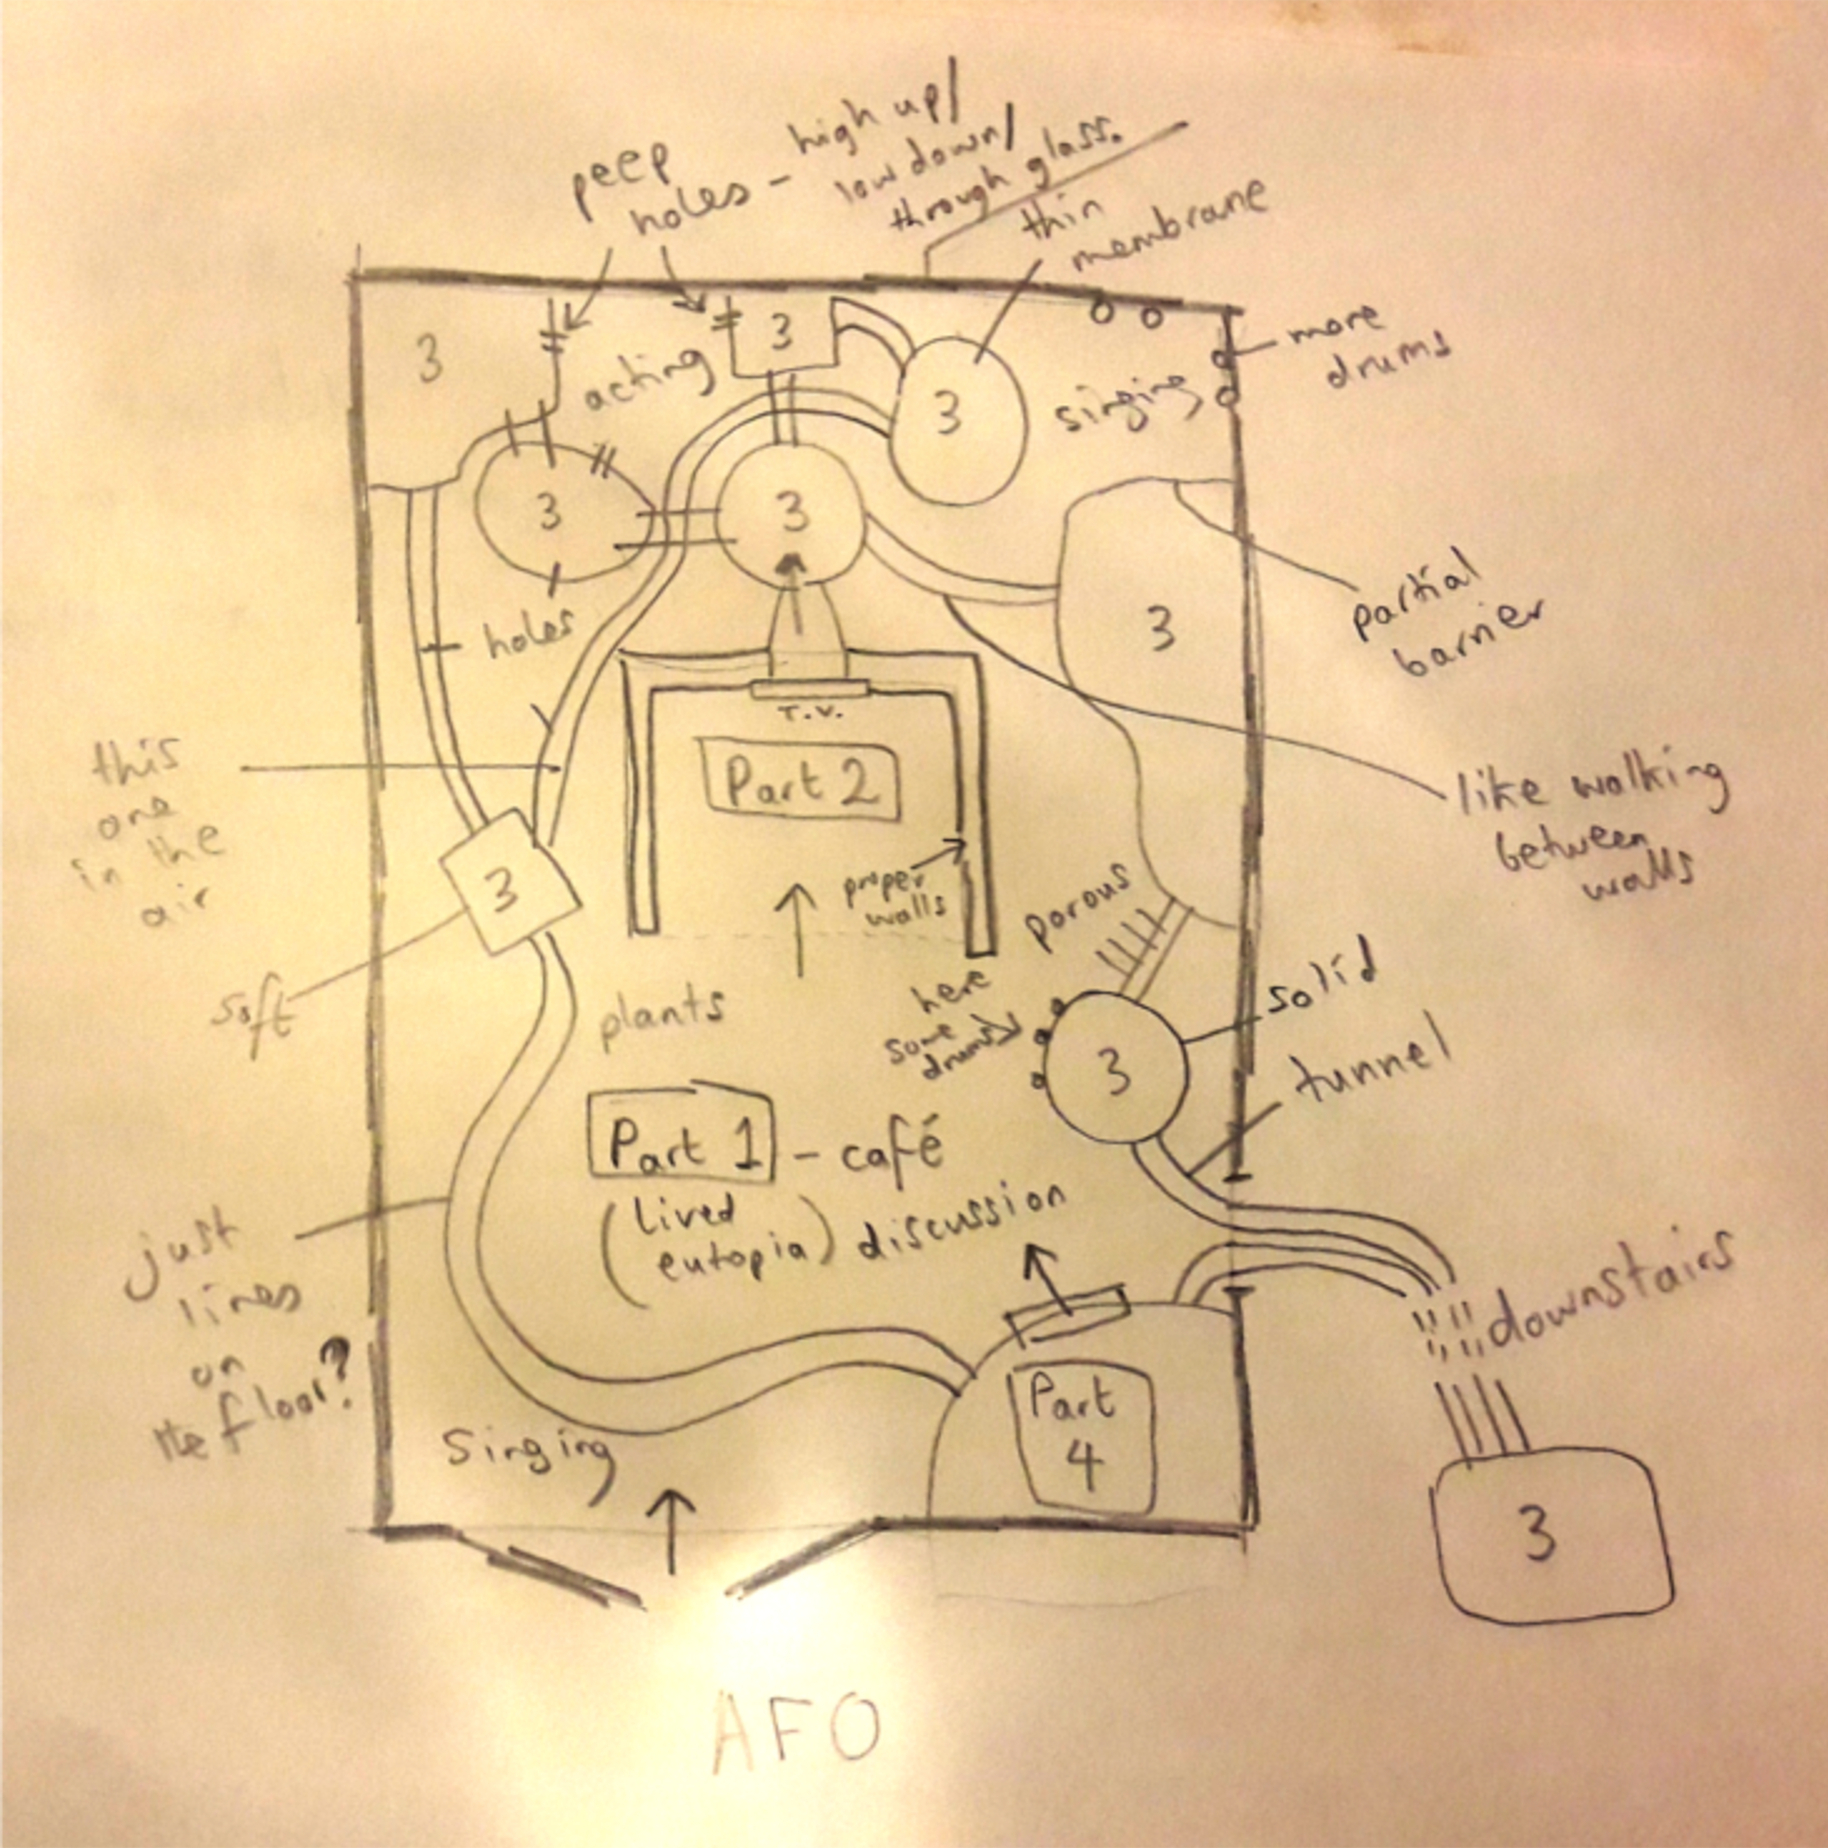 peep
holes - high up/
low down/
through glass.
thin
membrane
3
acting
3
3
singing
more
drums
3
3
holes
3
partial
barrier
T.V.
Part 2
proper
walls
this
one
in the
air
3
soft
like walking
between
walls
porous
here
some
drums
solid
3
tunnel
plants
Part 1 - café
(lived
eutopia) discussion
just
lines
on
the floor?
Singing
Part
4
downstairs
3
AFO